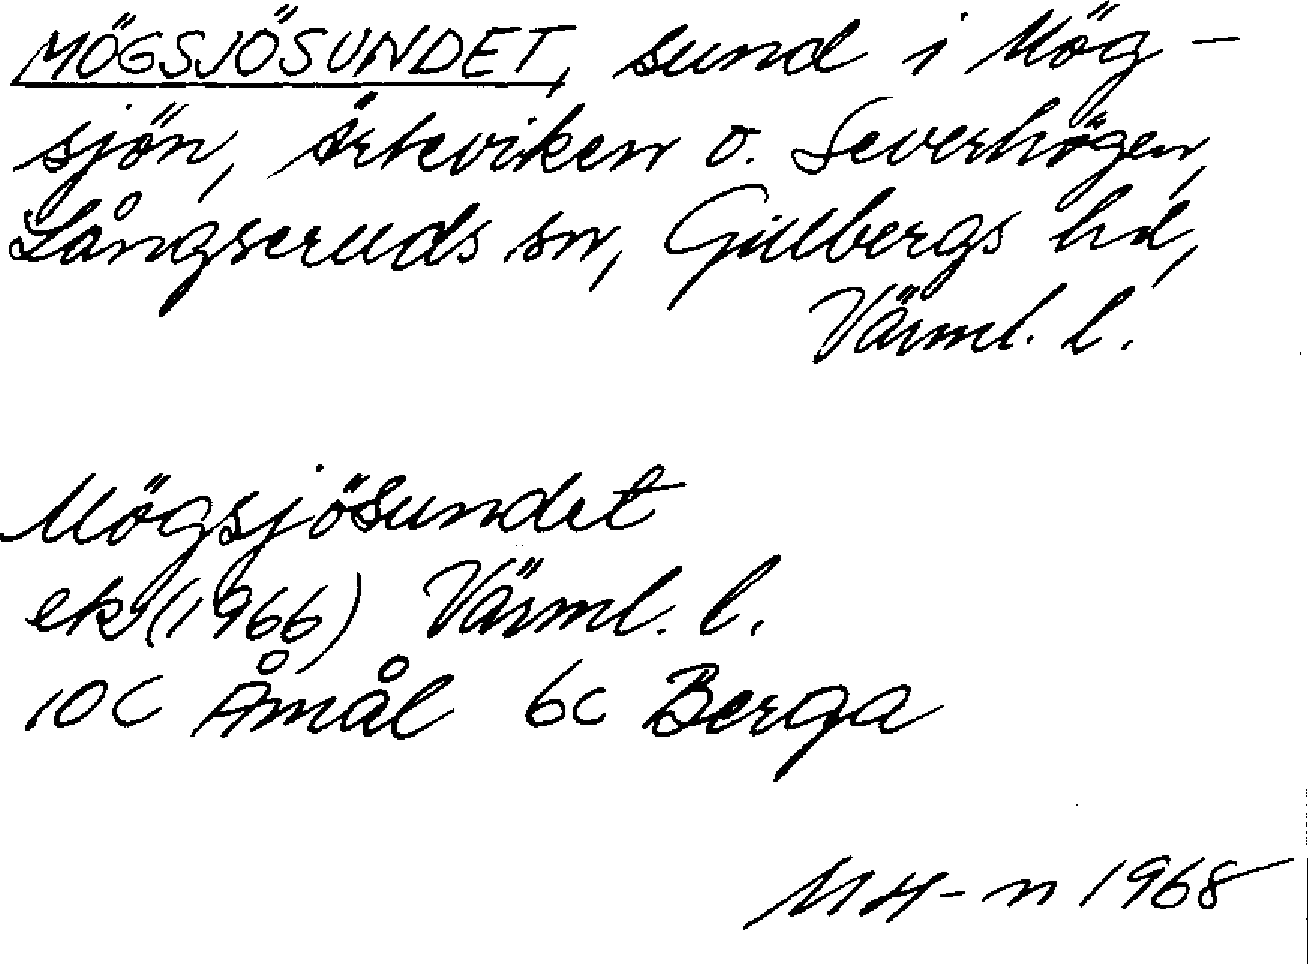 MÖGSJÖSUNDET, sund i Mög-
sjön, Årteviken o. Severhögen,
Långseruds sn, Gillbergs hd,
Värml. l.
Mögsjösundet
ek (1966) Värml. l.
10C Åmål 6c Berga
MH-n 1968